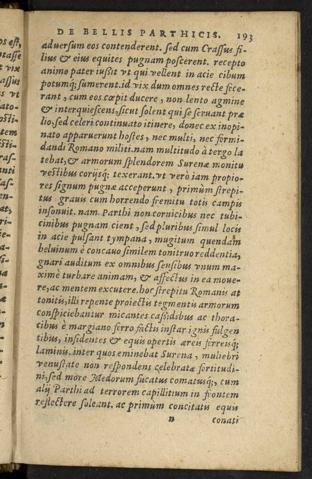 DE BELLIS PARTHICIS. 193
aduersum eos contenderent. sed cum Crassus fi-
lius & eius equites pugnam poscerent. recepto
animo pater iussit vt qui vellent in acie cibum
potumq; sumerent. id vix dum omnes recte fece-
rant, cum eos cœpit ducere, non lento agmine
& interquiescens, sicut solent qui se seruant præ
lio, sed celeri continuato itinere, donec ex inopi-
nato apparuerunt hostes, nec multi, nec formi-
dandi Romano milit. nam multitudo à tergo la
tebat, & armorum splendorem Surenæ monitu
vestibus corijsq; texerant. vt verò iam propio-
res signum pugnæ acceperunt, primùm strepi-
tus grauis cum horrendo fremitu totis campis
insonuit. nam Parthi non cornicibus nec tubi-
cinibus pugnam cient, sed pluribus simul locis
in acie pulsant tympana, mugitum quendam
beluinum è concauo similem tonitruo reddentia,
gnari auditum ex omnibus sensibus vnum ma-
ximè turbare animam, & affectus in ea moue-
re, ac mentem excutere. hoc strepitu Romanis at
tonitis, illi repente proiectis tegmentis armorum
conspiciebantur micantes cassidibus ac thora-
cibus è margiano ferro factis instar ignis fulgen
tibus, insidentes & equis opertis æreis ferreisq;
laminis. inter quos eminebat Surena, muliebri
venustate non respondens celebratæ fortitudi-
ni, sed more Medorum fucatus comatusq;, cum
alij Parthi ad terrorem capillitium in frontem
reflectere soleant. ac primùm concitatis equis
n conati